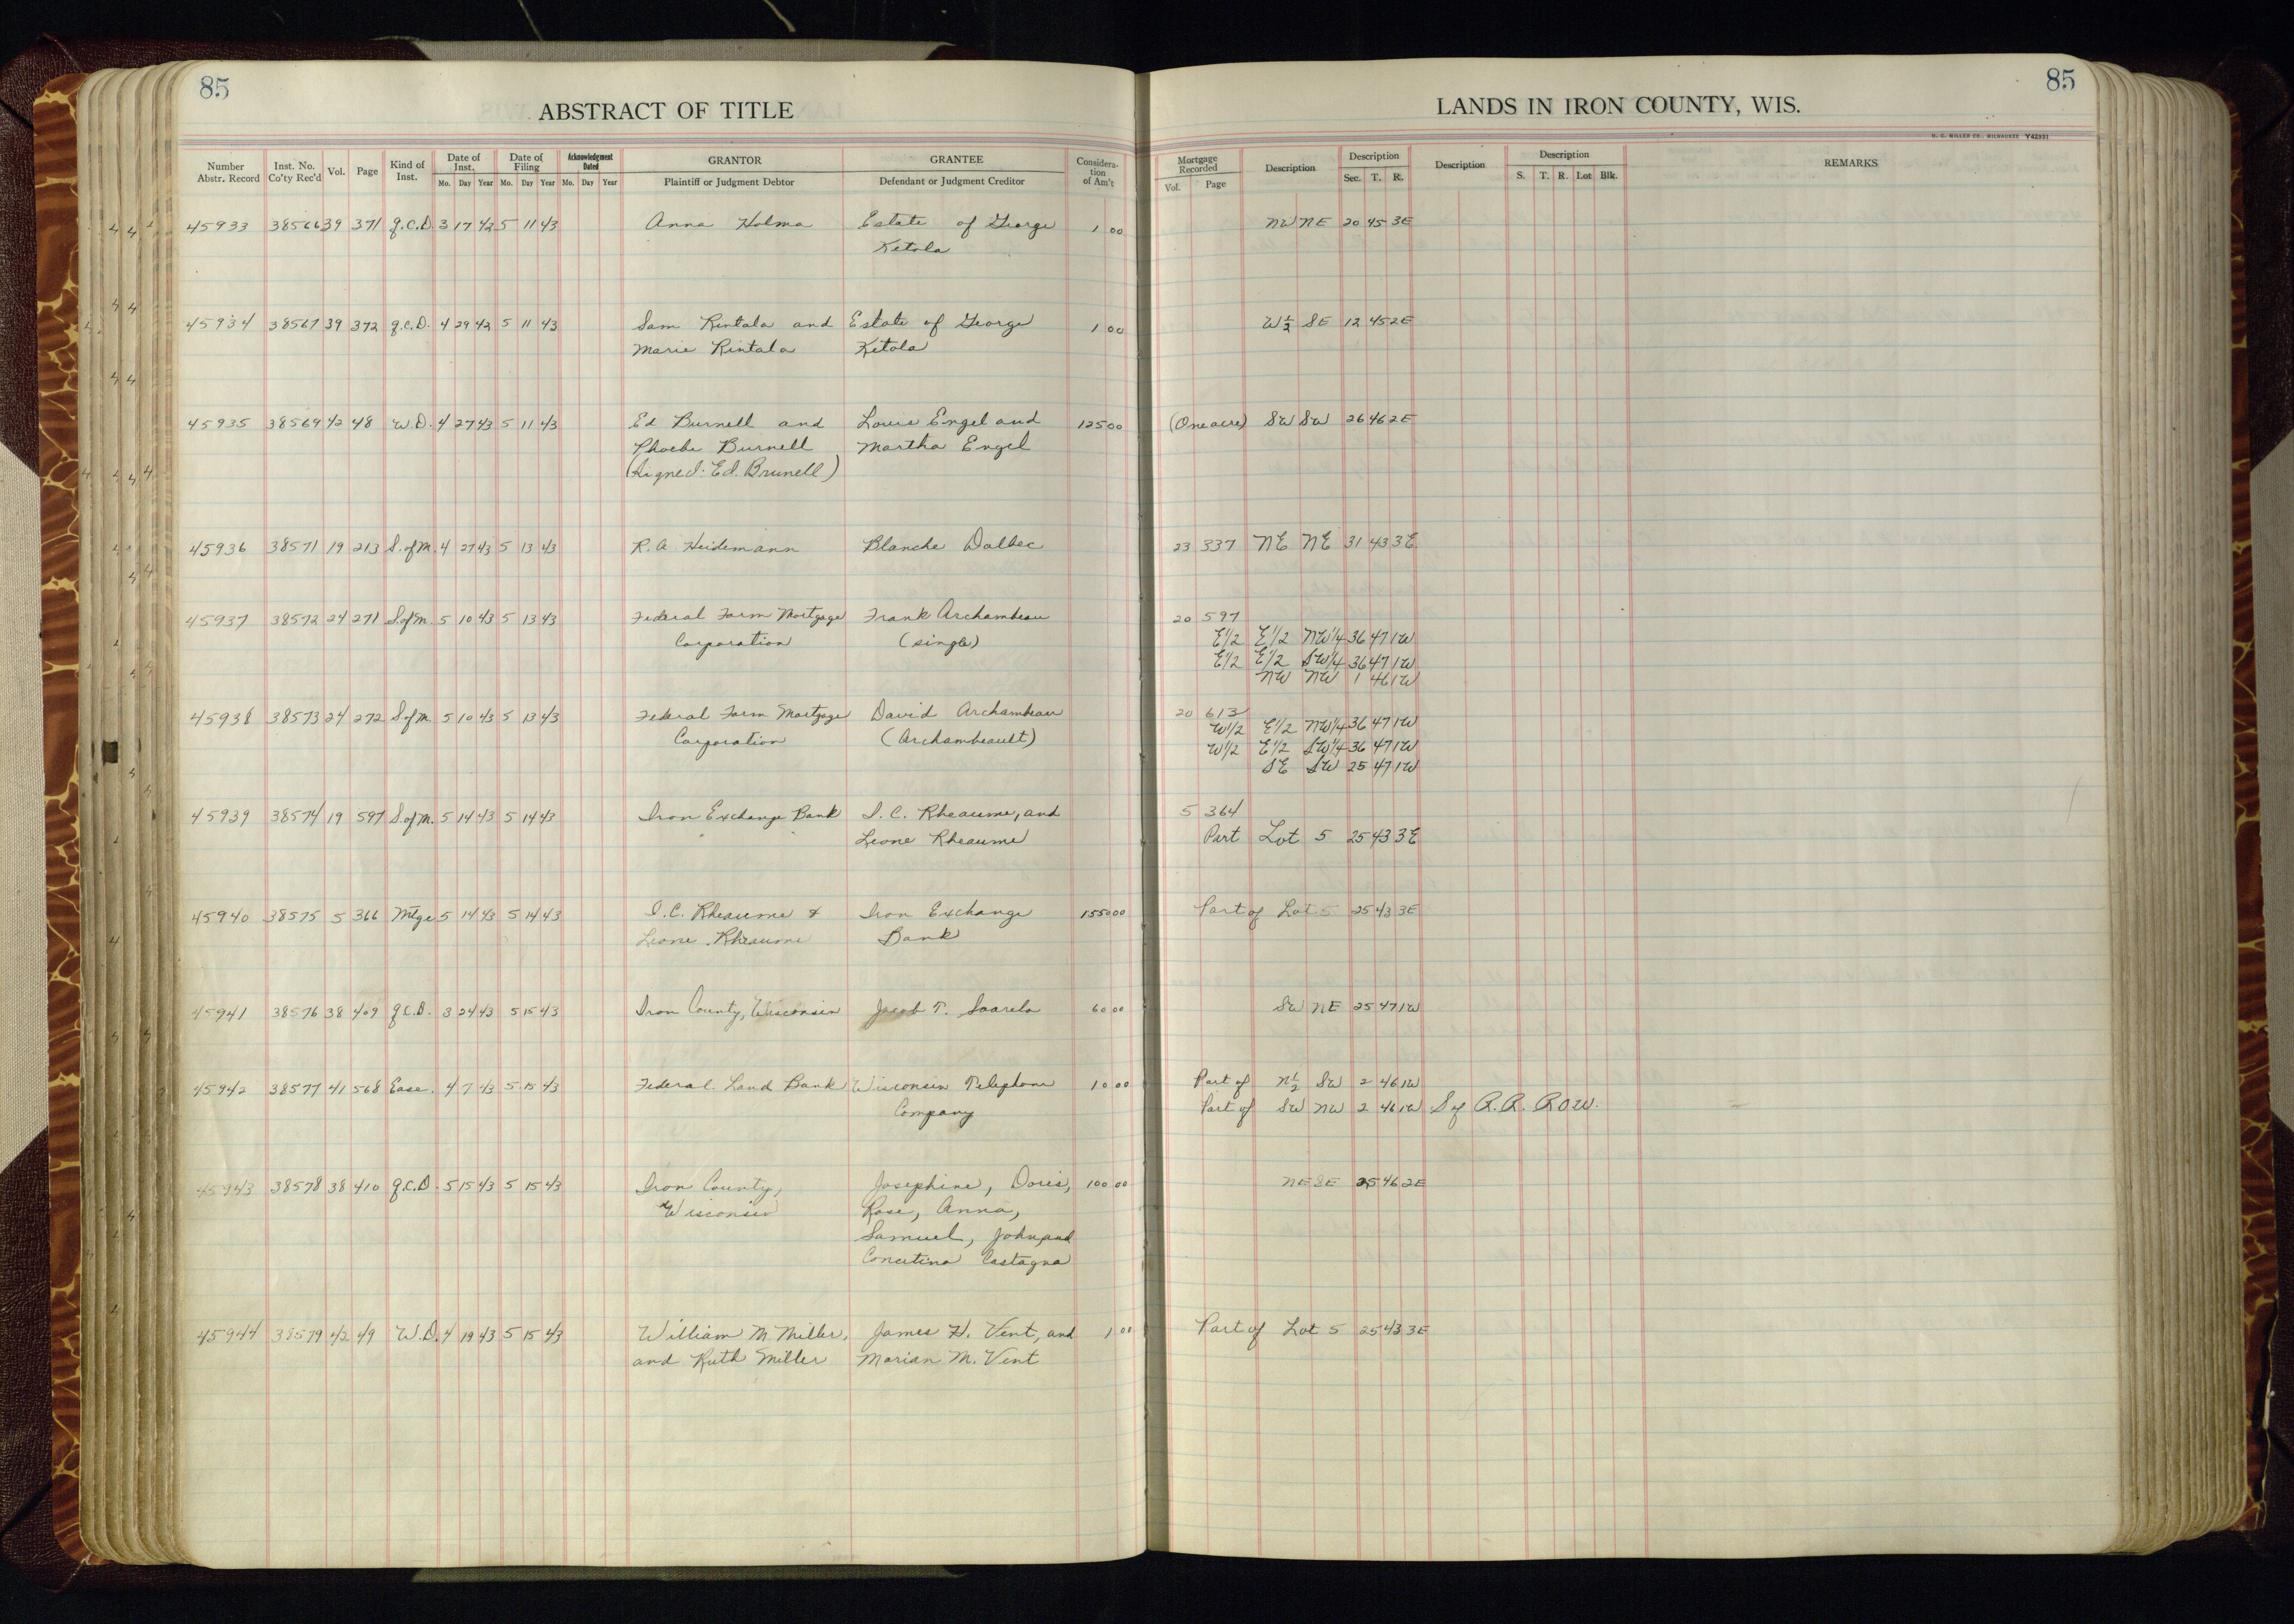 85
ABSTRACT OF TITLE
LANDS IN IRON COUNTY, WIS.
85
H. C. MILLER CO., MILWAUKEE Y42931
Number Abstr. Record Inst. No. Co'ty Rec'd Vol. Page Kind of Inst. Date of Inst. Mo. Day Year Date of Filing Mo. Day Year Acknowledgment Dated Mo. Day Year GRANTOR Plaintiff or Judgment Debtor GRANTEE Defendant or Judgment Creditor Considera-tion of Am't Mortgage Recorded Vol. Page Description Description Sec. T. R. Description Description S. T. R. Lot Blk. REMARKS
45933 38566 39 371 q.C.D. 3 17 42 5 11 43 Anna Holma Estate of George 1 00 NW NE 20 45 3E
Ketola
45934 38567 39 372 q.C.D. 4 29 42 5 11 43 Sam Rintala and Estate of George 1 00 W½ SE 12 45 2E
Marie Rintala Ketola
45935 38569 42 48 W.D. 4 27 43 5 11 43 Ed Burnell and Louis Engel and 125 00 (One acre) SW SW 26 46 2E
Phoebe Burnell Martha Engel
(Signed: Ed. Brunell)
45936 38571 19 213 S. of M. 4 27 43 5 13 43 R. A. Heidemann Blanche Dalbec 23 337 NE NE 31 43 3E
45937 38572 24 271 S. of M. 5 10 43 5 13 43 Federal Farm Mortgage Frank Archambeau 20 597
Corporation (single) E1/2 E1/2 NW1/4 36 47 1W
E1/2 E1/2 SW1/4 36 47 1W
NW NW 1 46 1W
45938 38573 24 272 S. of M. 5 10 43 5 13 43 Federal Farm Mortgage David Archambeau 20 613
Corporation (Archambeault) W1/2 E1/2 NW1/4 36 47 1W
W1/2 E1/2 SW1/4 36 47 1W
SE SW 25 47 1W
45939 38574 19 597 S. of M. 5 14 43 5 14 43 Iron Exchange Bank I. C. Rheaume, and 5 364
Leone Rheaume Part Lot 5 25 43 3E
45940 38575 5 366 Mtge 5 14 43 5 14 43 I. C. Rheaume & Iron Exchange 1550 00 Part of Lot 5 25 43 3E
Leone Rheaume Bank
45941 38576 38 409 q.C.D. 3 24 43 5 15 43 Iron County, Wisconsin Jacob T. Saarela 60 00 SW NE 25 47 1W
45942 38577 41 568 Ease. 4 7 43 5 15 43 Federal Land Bank Wisconsin Telephone 10 00 Part of N½ SW 2 46 1W
Company Part of SW NW 2 46 1W Sy R.R. ROW.
45943 38578 38 410 q.C.D. 5 15 43 5 15 43 Iron County, Josephine, Doris, 100 00 NE SE 25 46 2E
Wisconsin Rose, Anna,
Samuel, John, and
Concetina Castagna
45944 38579 42 49 W.D. 4 19 43 5 15 43 William M. Miller, James H. Vent, and 1 00 Part of Lot 5 25 43 3E
and Ruth Miller Marian M. Vent